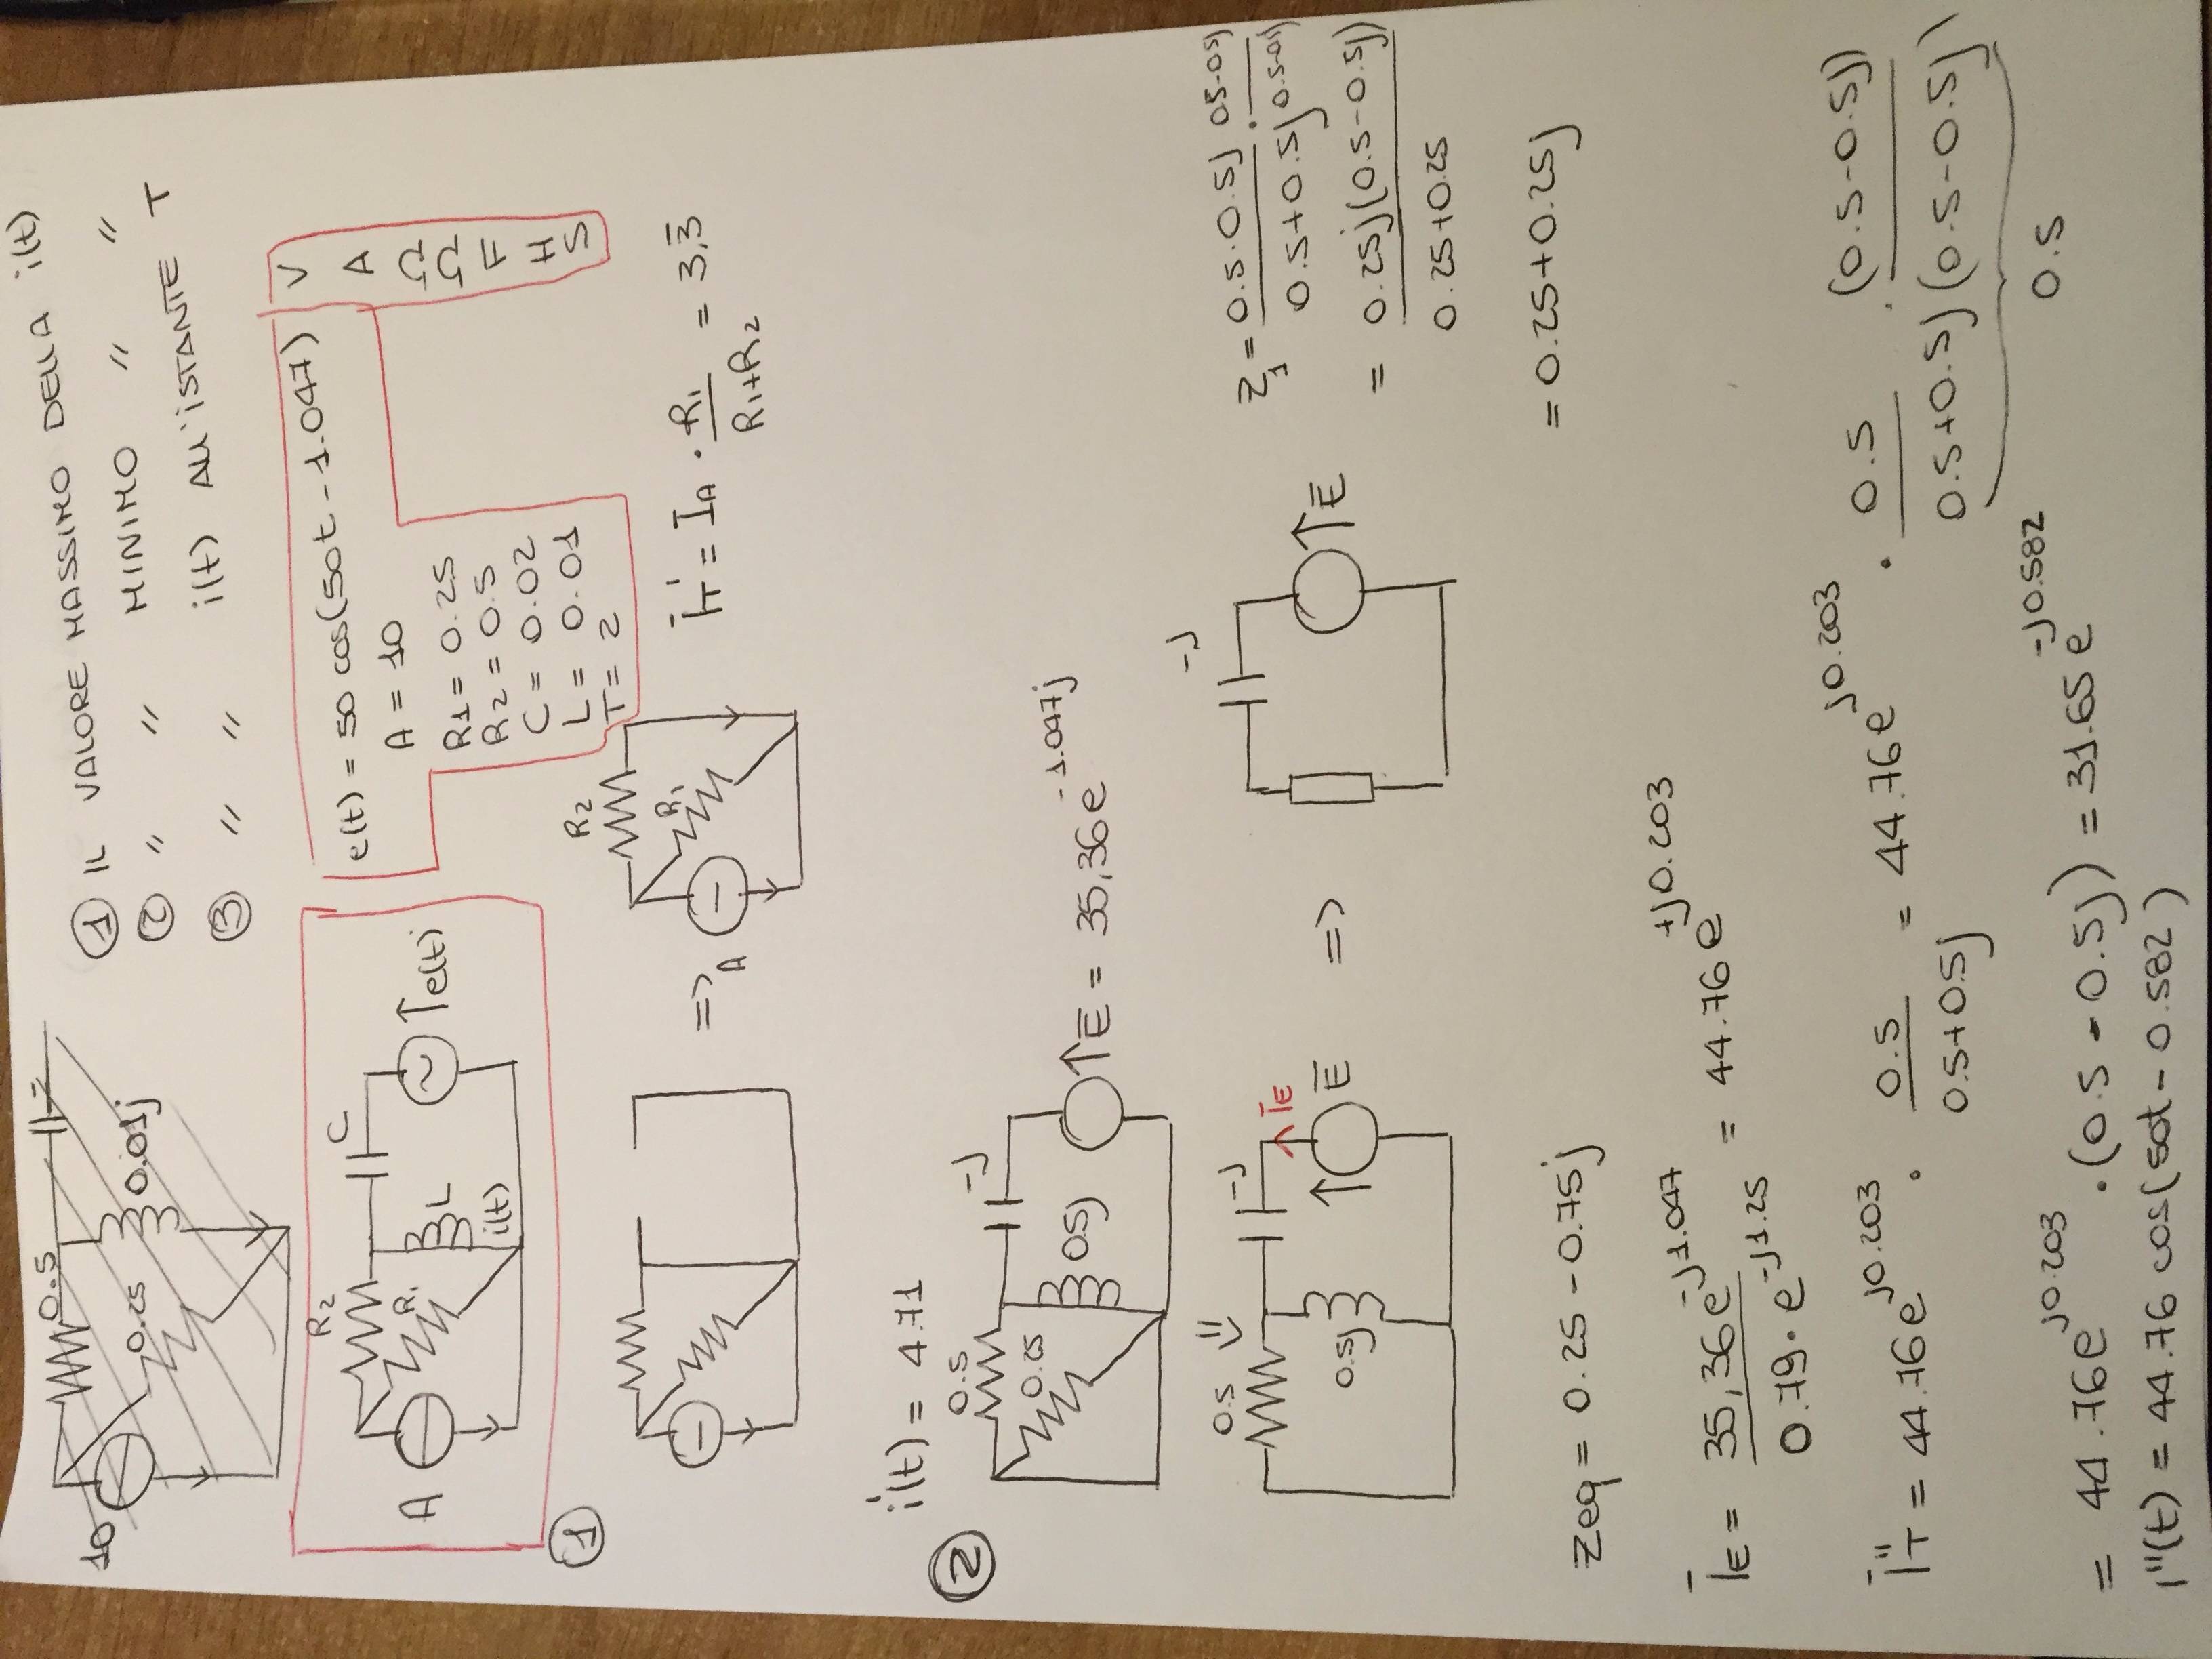 ① IL VALORE MASSIMO DELLA i(t)
② " " MINIMO " "
③ " " i(t) ALL'ISTANTE T
10
0.5
0.25
0.01j
A
R2
R1
C
L
i(t)
e(t)
e(t) = 50 cos(50t - 1.047) V
A = 10 A
R1 = 0.25 Ω
R2 = 0.5 Ω
C = 0.02 F
L = 0.01 H
T = 2 S
①
=>
A
R2
R1
IT' = IA · R1 / R1+R2 = 3,3̅
i(t) = 4.71
②
0.5
0.25
-J
0.5j
E̅ = 35,36e^-1.047j
0.5
=
-J
0.5j
I̅E
E̅
=>
-J
E̅
Z1 = 0.5·0.5j / 0.5+0.5j · 0.5-0.5j / 0.5-0.5j
= 0.25j(0.5-0.5j) / 0.25+0.25
= 0.25+0.25j
Zeq = 0.25 - 0.75j
I̅E = 35,36e^-J1.047 / 0.79·e^-J1.25 = 44.76e^+J0.203
I̅T" = 44.76e^J0.203 · 0.5 / 0.5+0.5j = 44.76e^J0.203 · 0.5 / 0.5+0.5j · (0.5-0.5j) / (0.5-0.5j)
0.5
= 44.76e^J0.203 · (0.5-0.5j) = 31.65e^-J0.582
i"(t) = 44.76 cos(50t - 0.582)